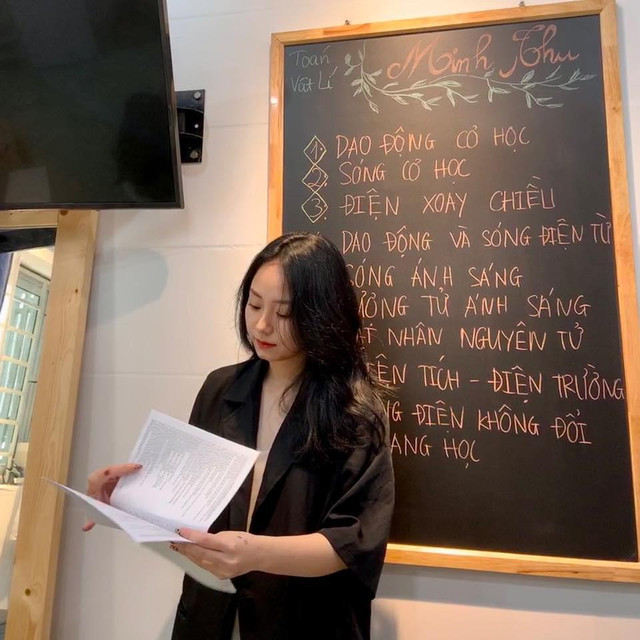 Toán
Vật Lí
Minh Thu
1 DAO ĐỘNG CƠ HỌC
2. SÓNG CƠ HỌC
3 ĐIỆN XOAY CHIỀU
DAO ĐỘNG VÀ SÓNG ĐIỆN TỪ
SÓNG ÁNH SÁNG
ƯỢNG TỬ ÁNH SÁNG
NHÂN NGUYÊN TỬ
ỆN TÍCH - ĐIỆN TRƯỜNG
NG ĐIỆN KHÔNG ĐỔI
ANG HỌC